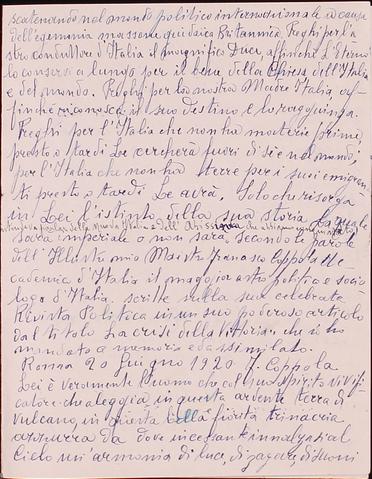 scatenando nel mondo politico internazionale a causa
dell'egemonia massone giudaica Britannica. Preghi per il
stro conduttore d'Italia il magnifico Duce, affinché l'Eterno
lo conservi a lungo per il bene della Chiesa dell'Italia
e del mondo. Preghi per la nostra Madre Italia, af-
finché riconosca il suo destino e lo raggiunga.
Preghi per l'Italia che non ha materie prime
presto o tardi le cercherà fuori di sé e nel mondo,
per l'Italia che non ha terre per i suoi emigran
ti presto o tardi le avrà. Solo che risorga
in Lei l'istinto della sua storia la quale
della nuova Italia e dell'
sarà imperiale o non sarà, secondo le parole
dell'Illustrissimo Maestro Francesco Coppola Ac
cademico d'Italia il maggior astro politico e socio
logo d'Italia. scritte nella sua celebrata
Rivista Politica in un suo poderoso articolo
dal titolo La crisi della Vittoria che io ho
mandato a memoria ed assimilato.
Roma 20 Giugno 1920. F. Coppola
Lei è veramente l'uomo che col suo spirito vivifi
catore che aleggia, in questa ardente terra di
Vulcano, in questa bella fiorita trinacria
azzurra da dove incessante innalza al
Cielo un'armonia di luce, di zagare, di suoni